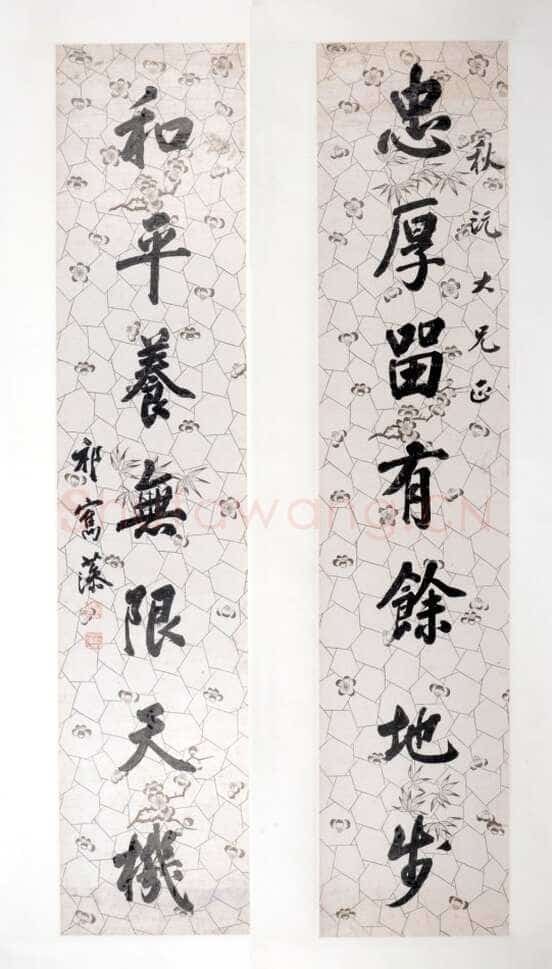 秋沅大兄正
忠厚留有餘地步
和平養無限天機
祁寯藻
Shufawang.CN